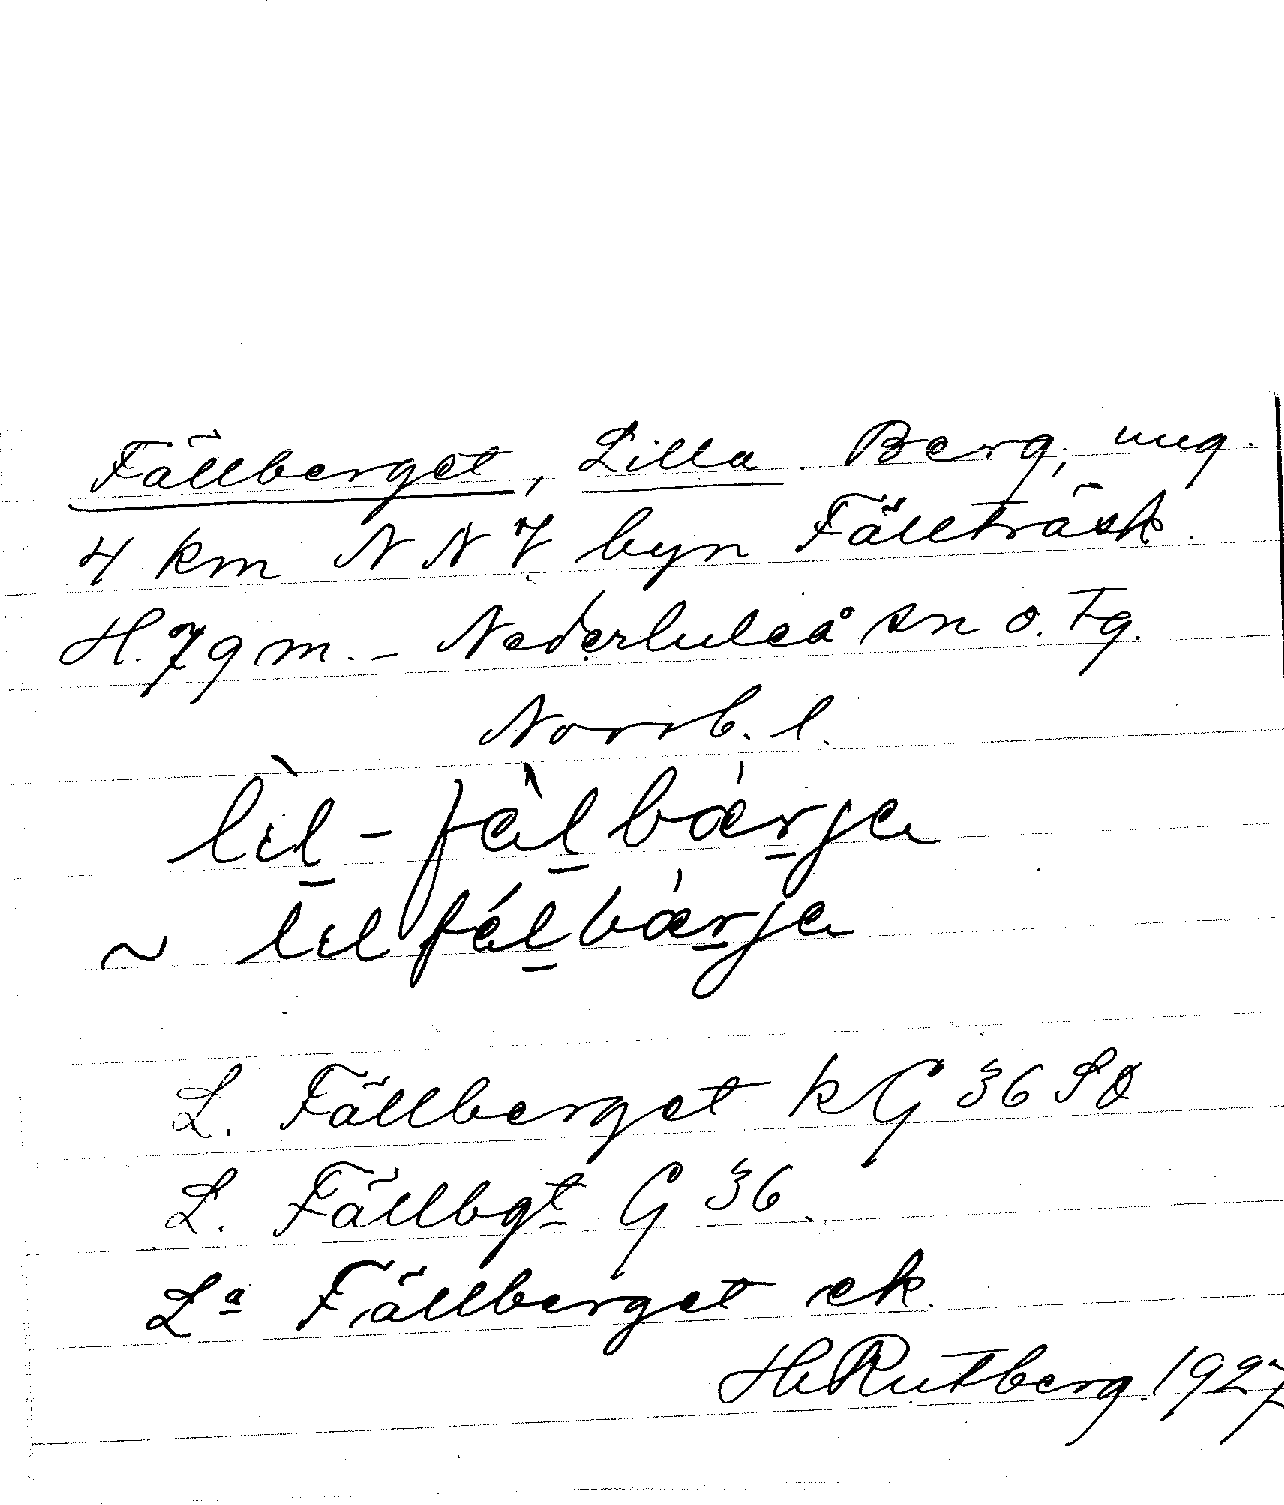 Fällberget, Lilla Berg, ung.
4 km NNV byn Fällträsk.
H. 79 m. – Nederluleå sn o. Tg.
Norrb. l.
lìl-fàlbárja
~ lilfálbárja
L. Fällberget kG 36 SO
L. Fällbgt G 36.
Lª Fällberget ek.
H. Rutberg 1927